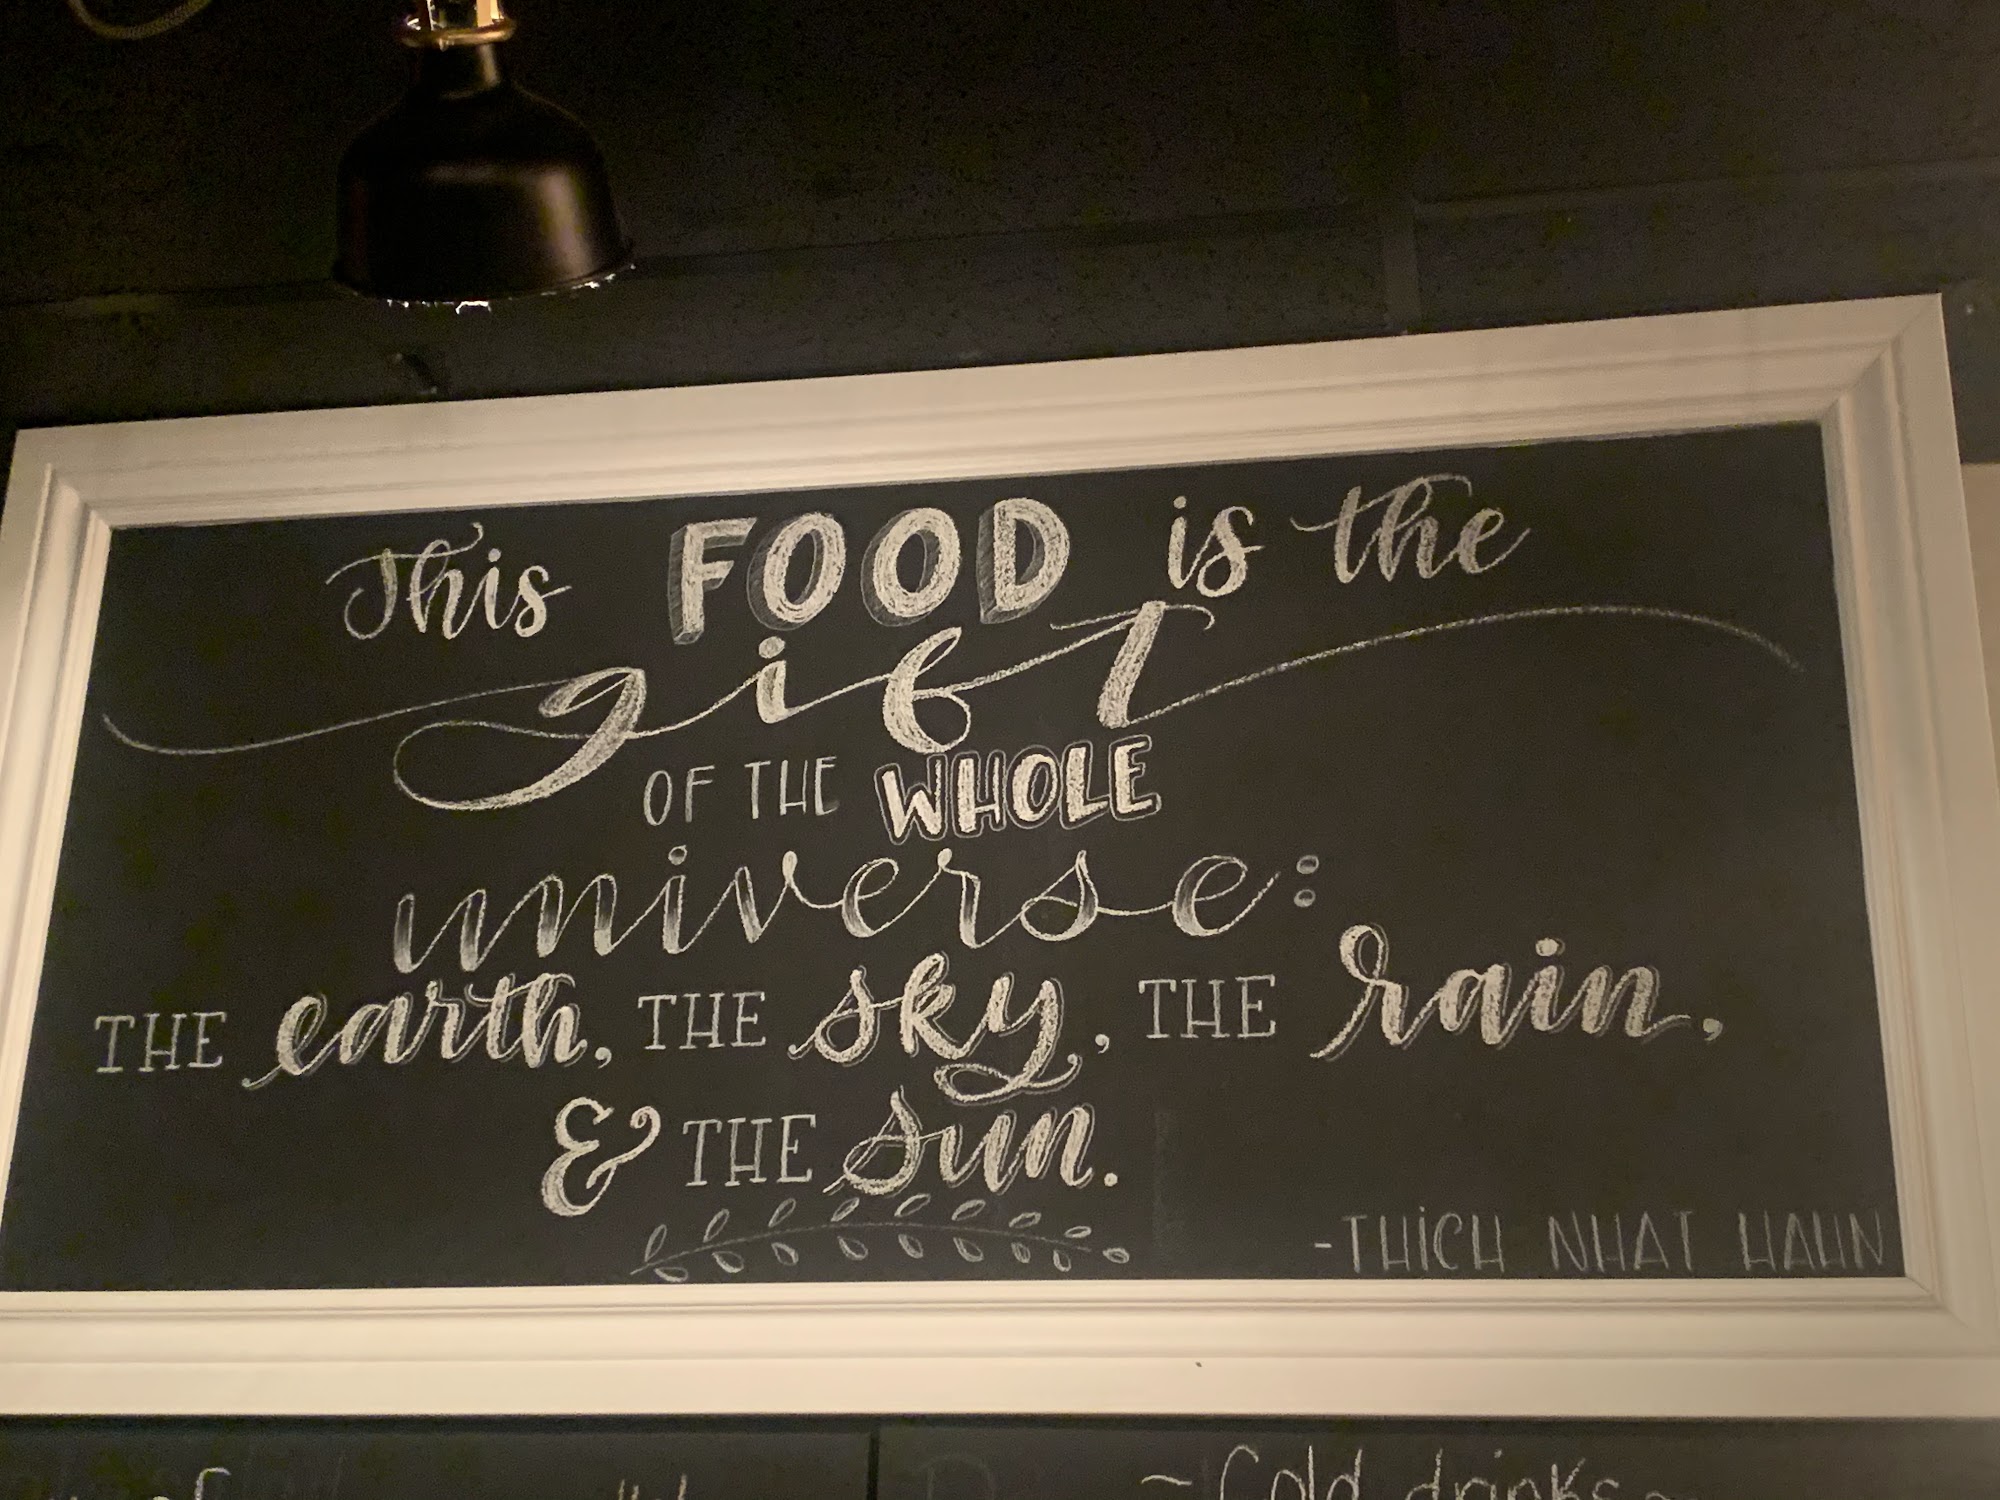 This FOOD is the
gift
OF THE WHOLE
universe:
THE earth, THE sky, THE rain,
& THE sun.
-THICH NHAT HAHN
~ Cold drinks ~